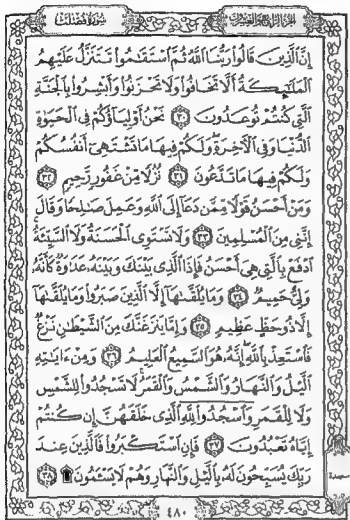 الجزء الرابع والعشرون
سورة فصلت
إِنَّ الَّذِينَ قَالُوا رَبُّنَا اللَّهُ ثُمَّ اسْتَقَامُوا تَتَنَزَّلُ عَلَيْهِمُ
الْمَلَائِكَةُ أَلَّا تَخَافُوا وَلَا تَحْزَنُوا وَأَبْشِرُوا بِالْجَنَّةِ
الَّتِي كُنْتُمْ تُوعَدُونَ ٣٠ نَحْنُ أَوْلِيَاؤُكُمْ فِي الْحَيَوٰةِ
الدُّنْيَا وَفِي الْآخِرَةِ وَلَكُمْ فِيهَا مَا تَشْتَهِي أَنْفُسُكُمْ
وَلَكُمْ فِيهَا مَا تَدَّعُونَ ٣١ نُزُلًا مِنْ غَفُورٍ رَحِيمٍ ٣٢
وَمَنْ أَحْسَنُ قَوْلًا مِمَّنْ دَعَا إِلَى اللَّهِ وَعَمِلَ صَالِحًا وَقَالَ
إِنَّنِي مِنَ الْمُسْلِمِينَ ٣٣ وَلَا تَسْتَوِي الْحَسَنَةُ وَلَا السَّيِّئَةُ
ادْفَعْ بِالَّتِي هِيَ أَحْسَنُ فَإِذَا الَّذِي بَيْنَكَ وَبَيْنَهُ عَدَاوَةٌ كَأَنَّهُ
وَلِيٌّ حَمِيمٌ ٣٤ وَمَا يُلَقَّاهَا إِلَّا الَّذِينَ صَبَرُوا وَمَا يُلَقَّاهَا
إِلَّا ذُو حَظٍّ عَظِيمٍ ٣٥ وَإِمَّا يَنْزَغَنَّكَ مِنَ الشَّيْطَانِ نَزْغٌ
فَاسْتَعِذْ بِاللَّهِ إِنَّهُ هُوَ السَّمِيعُ الْعَلِيمُ ٣٦ وَمِنْ ءَايَاتِهِ
الَّيْلُ وَالنَّهَارُ وَالشَّمْسُ وَالْقَمَرُ لَا تَسْجُدُوا لِلشَّمْسِ
وَلَا لِلْقَمَرِ وَاسْجُدُوا لِلَّهِ الَّذِي خَلَقَهُنَّ إِنْ كُنْتُمْ
إِيَّاهُ تَعْبُدُونَ ٣٧ فَإِنِ اسْتَكْبَرُوا فَالَّذِينَ عِنْدَ
رَبِّكَ يُسَبِّحُونَ لَهُ بِالَّيْلِ وَالنَّهَارِ وَهُمْ لَا يَسْئَمُونَ ۩ ٣٨
سجدة
٤٨٠